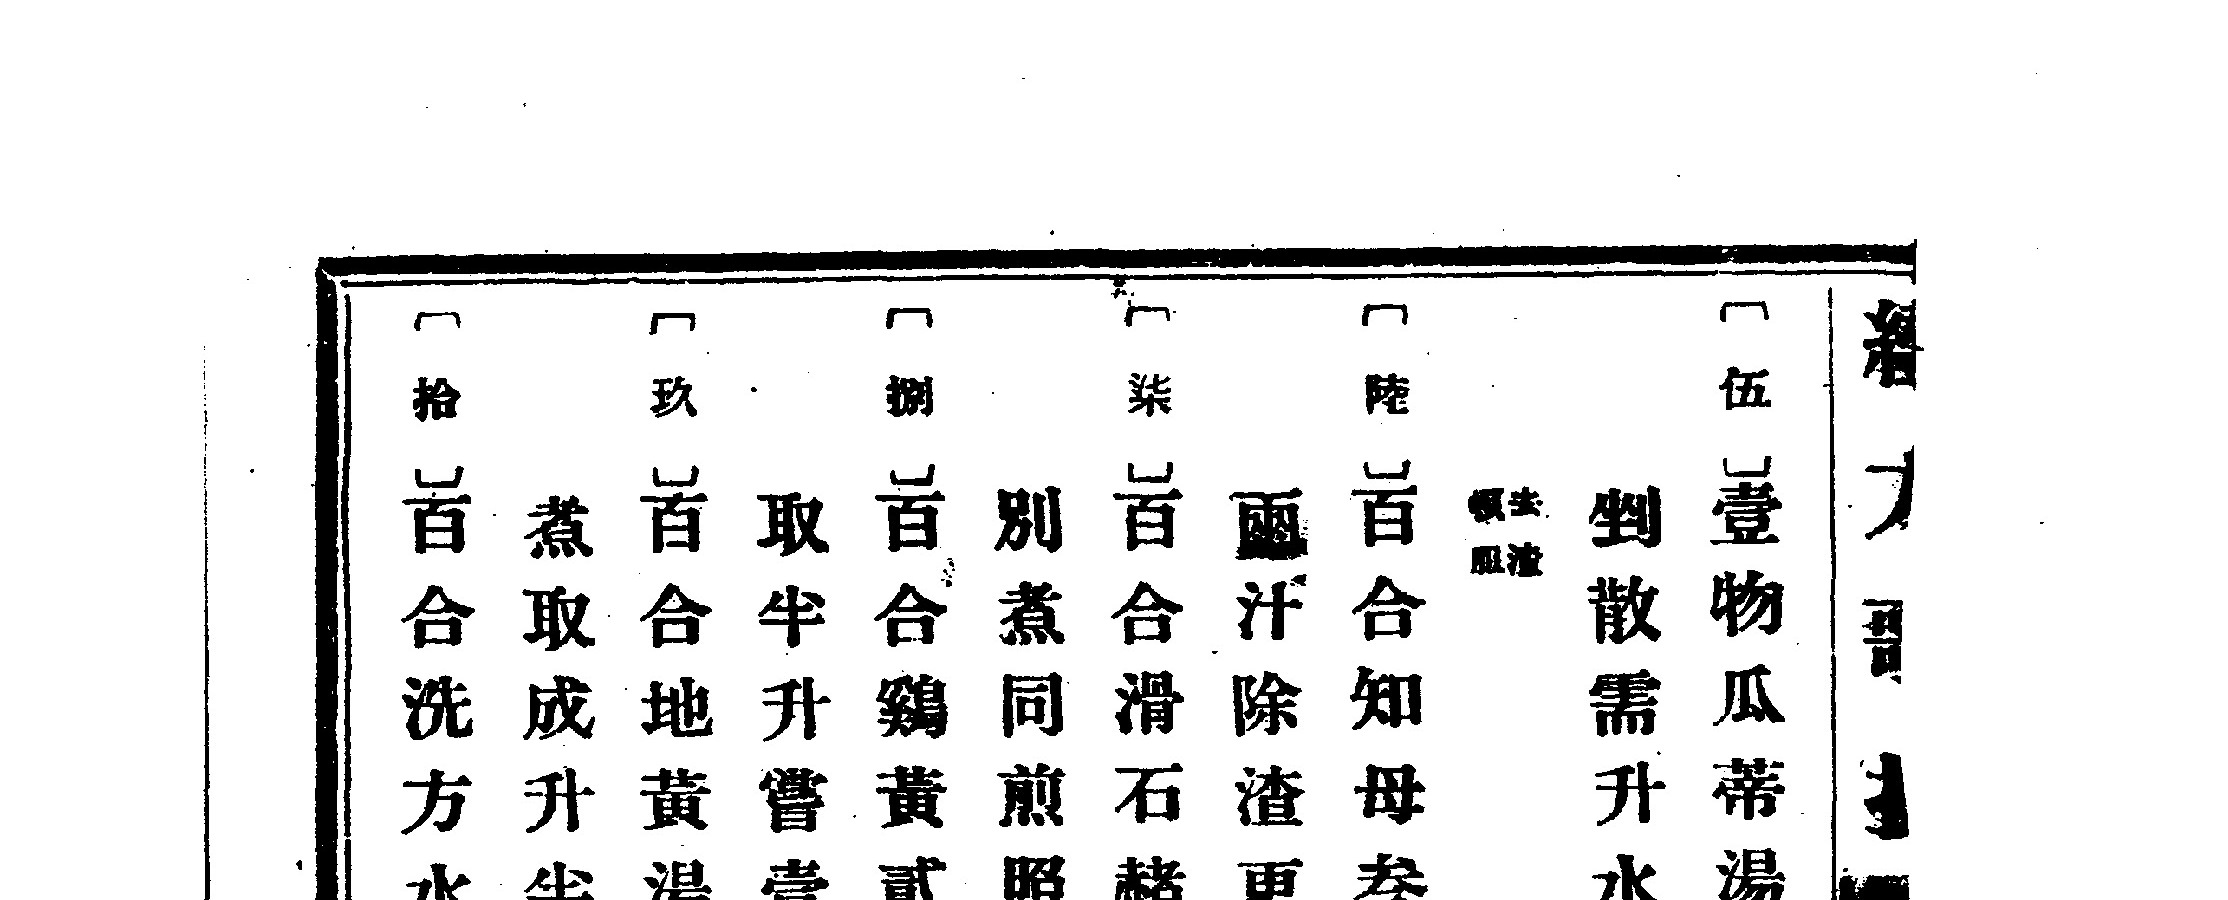 〔伍〕壹物瓜蒂湯
剉散需升水
去渣
頓服
〔陸〕百合知母叁
兩汁除渣更
〔柒〕百合滑石赭
別煮同煎照
〔捌〕百合鷄黃貳
取半升嘗壹
〔玖〕百合地黃湯
煮取成升半
〔拾〕百合洗方水